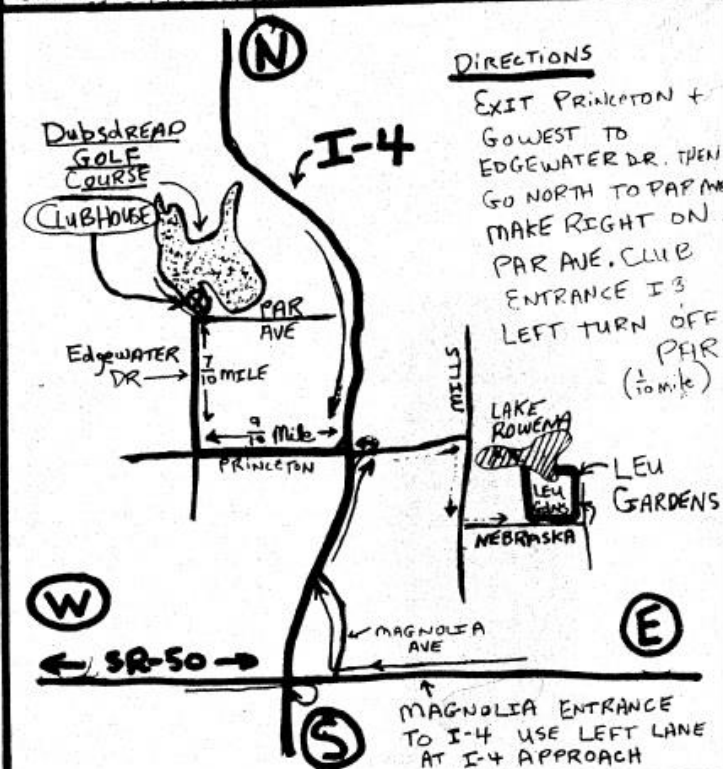 N
DIRECTIONS
EXIT PRINCETON +
GO WEST TO
EDGEWATER DR. THEN
GO NORTH TO PAR AVE
MAKE RIGHT ON
PAR AVE. CLUB
ENTRANCE IS
LEFT TURN OFF
PAR
(1/10 mile)
DubsdREAD
GOLF
COURSE
CLUBHOUSE
I-4
PAR
AVE
Edgewater
DR
7/10 MILE
9/10 Mile
PRINCETON
MILLS
LAKE
ROWENA
LEU
GDNS
LEU
GARDENS
NEBRASKA
W
E
SR-50
MAGNOLIA
AVE
S
MAGNOLIA ENTRANCE
TO I-4 USE LEFT LANE
AT I-4 APPROACH